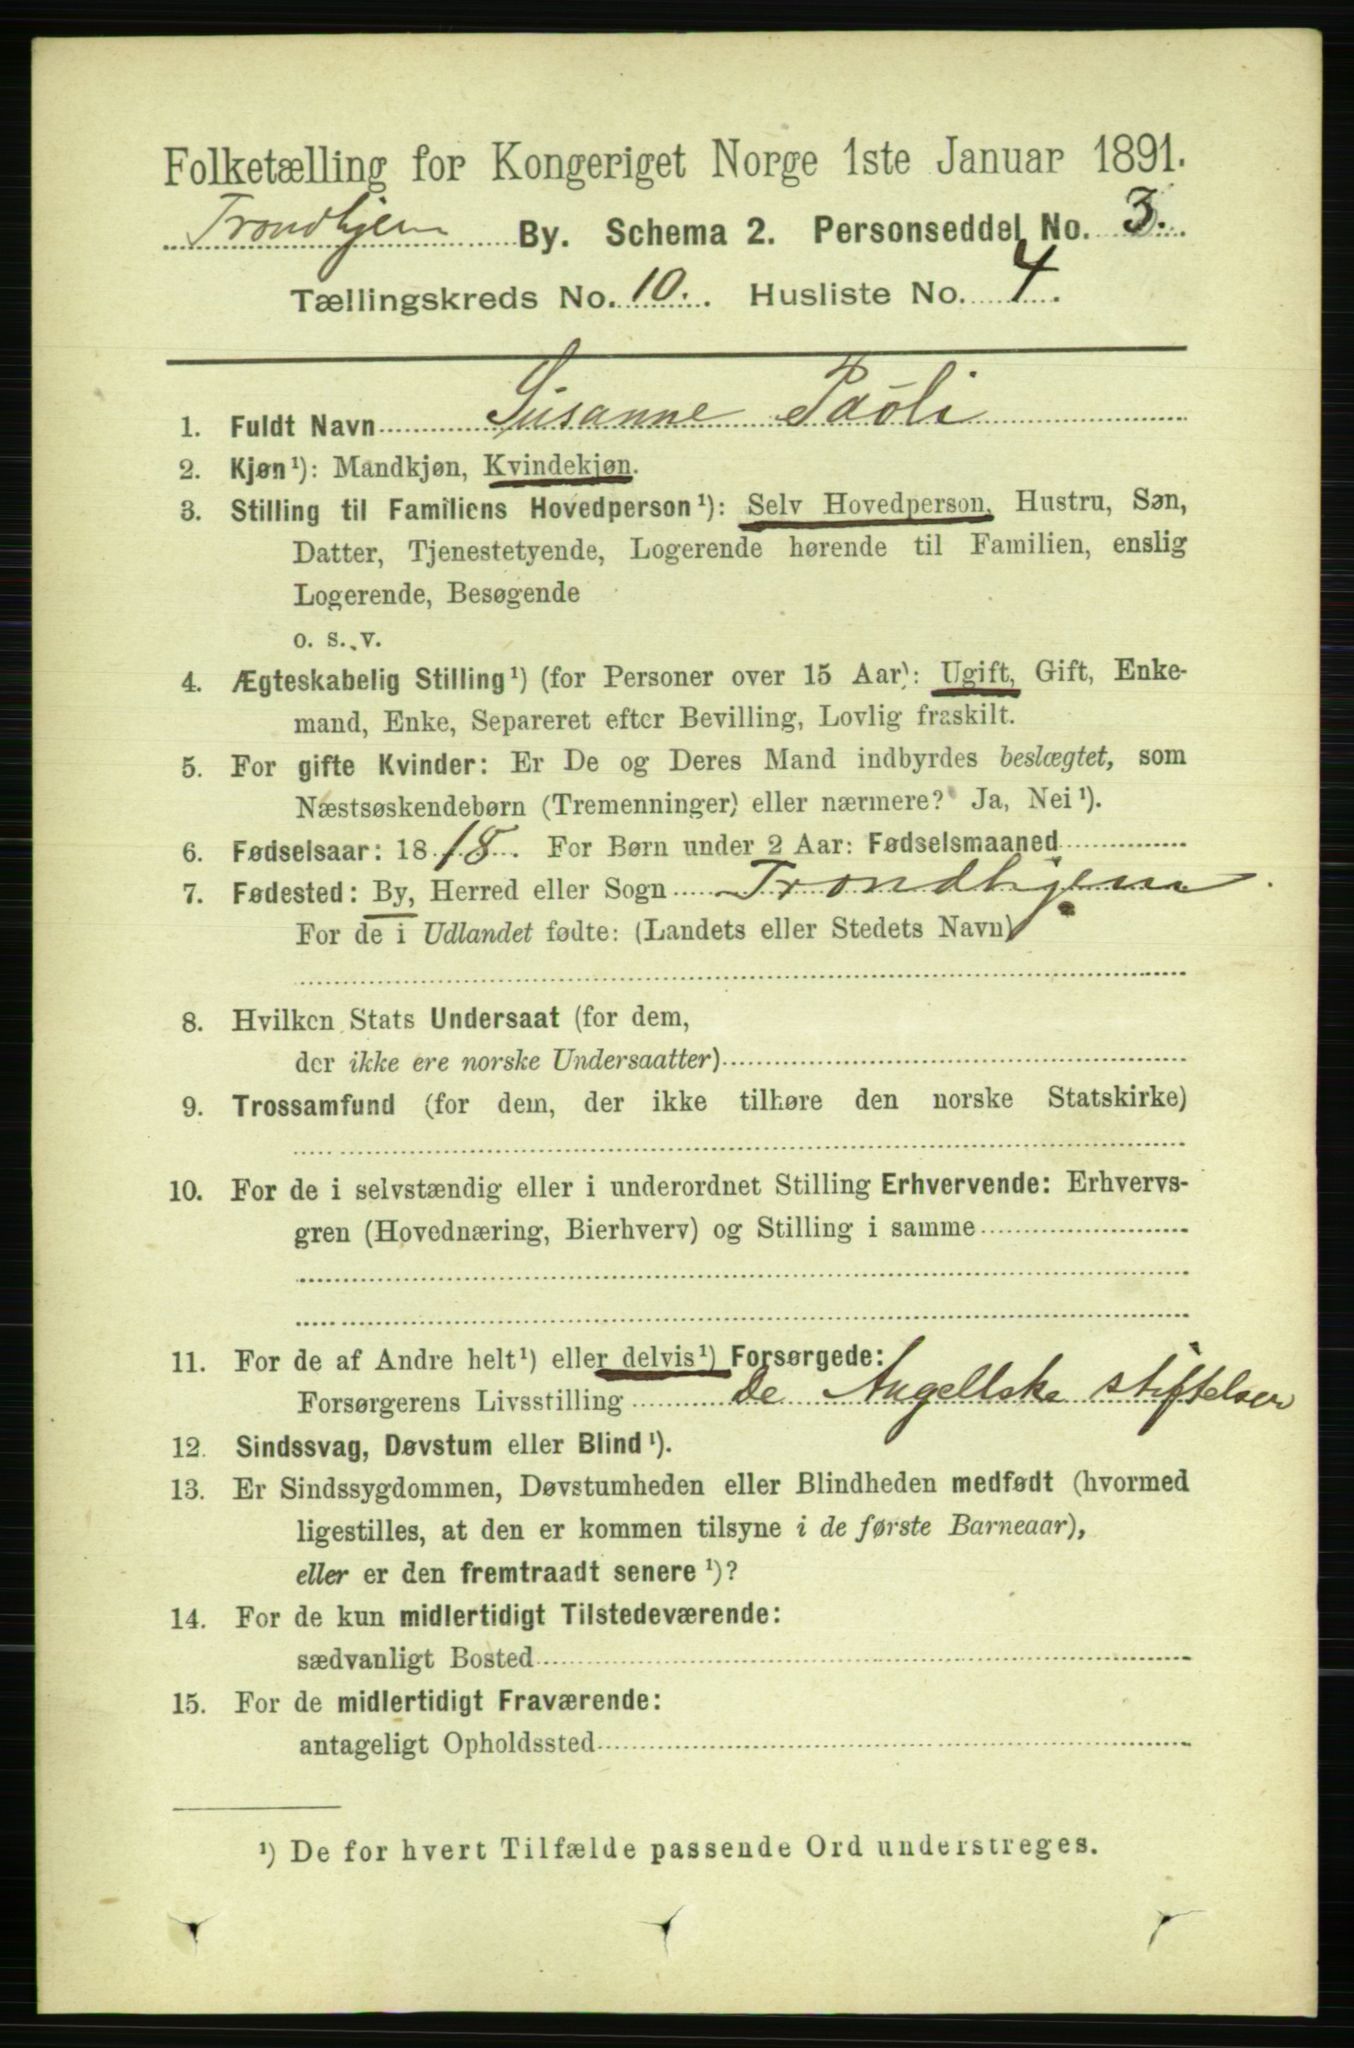 Folketælling for Kongeriget Norge 1ste Januar 1891.
Trondhjem By. Schema 2. Personseddel No. 3.
Tællingskreds No. 10. Husliste No. 4.
1. Fuldt Navn Susanne Paoli
2. Kjøn¹): Mandkjøn, Kvindekjøn.
3. Stilling til Familiens Hovedperson¹): Selv Hovedperson, Hustru, Søn,
Datter, Tjenestetyende, Logerende hørende til Familien, enslig
Logerende, Besøgende
o. s. v.
4. Ægteskabelig Stilling¹) (for Personer over 15 Aar): Ugift, Gift, Enke-
mand, Enke, Separeret efter Bevilling, Lovlig fraskilt.
5. For gifte Kvinder: Er De og Deres Mand indbyrdes beslægtet, som
Næstsøskendebørn (Tremenninger) eller nærmere? Ja, Nei¹).
6. Fødselsaar: 1818. For Børn under 2 Aar: Fødselsmaaned
7. Fødested: By, Herred eller Sogn Trondhjem
For de i Udlandet fødte: (Landets eller Stedets Navn)
8. Hvilken Stats Undersaat (for dem,
der ikke ere norske Undersaatter)
9. Trossamfund (for dem, der ikke tilhøre den norske Statskirke)
10. For de i selvstændig eller i underordnet Stilling Erhvervende: Erhvervs-
gren (Hovednæring, Bierhverv) og Stilling i samme
11. For de af Andre helt¹) eller delvis¹) Forsørgede:
Forsørgerens Livsstilling De Angellske stiftelser
12. Sindssvag, Døvstum eller Blind¹).
13. Er Sindssygdommen, Døvstumheden eller Blindheden medfødt (hvormed
ligestilles, at den er kommen tilsyne i de første Barneaar),
eller er den fremtraadt senere¹)?
14. For de kun midlertidigt Tilstedeværende:
sædvanligt Bosted
15. For de midlertidigt Fraværende:
antageligt Opholdssted
¹) De for hvert Tilfælde passende Ord understreges.